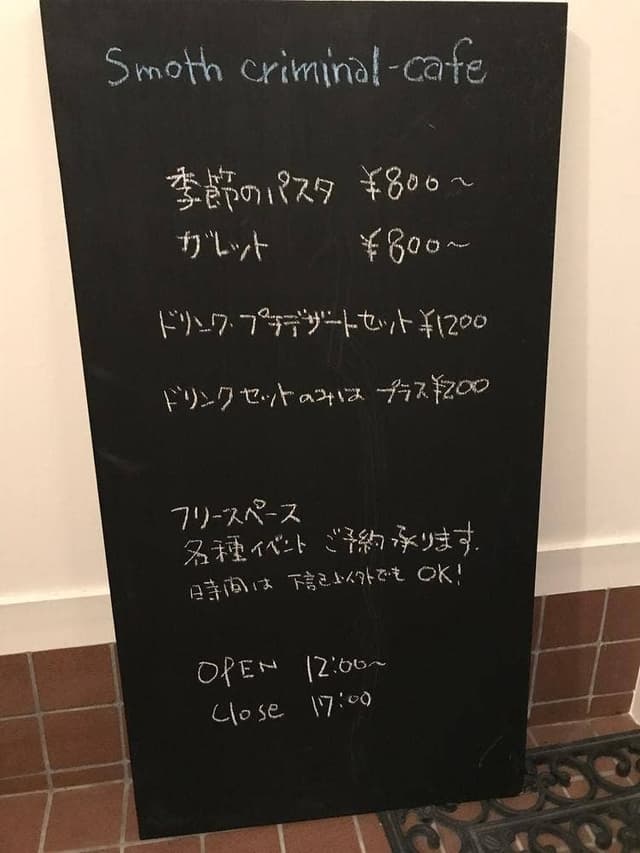 Smoth criminal-cafe
季節のパスタ ¥800~
ガレット ¥800~
ドリンク・プチデザートセット ¥1200
ドリンクセットのみは プラス¥200
フリースペース
各種イベント ご予約承ります.
時間は 下記以外でも OK!
OPEN 12:00~
Close 17:00